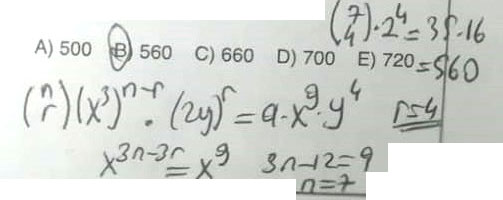 (7 4)·2⁴=35·16
A) 500 B) 560 C) 660 D) 700 E) 720 =560
(n r)(x³)ⁿ⁻ʳ·(2y)ʳ=a·x⁹·y⁴ r=4
x³ⁿ⁻³ʳ=x⁹ 3n-12=9
n=7